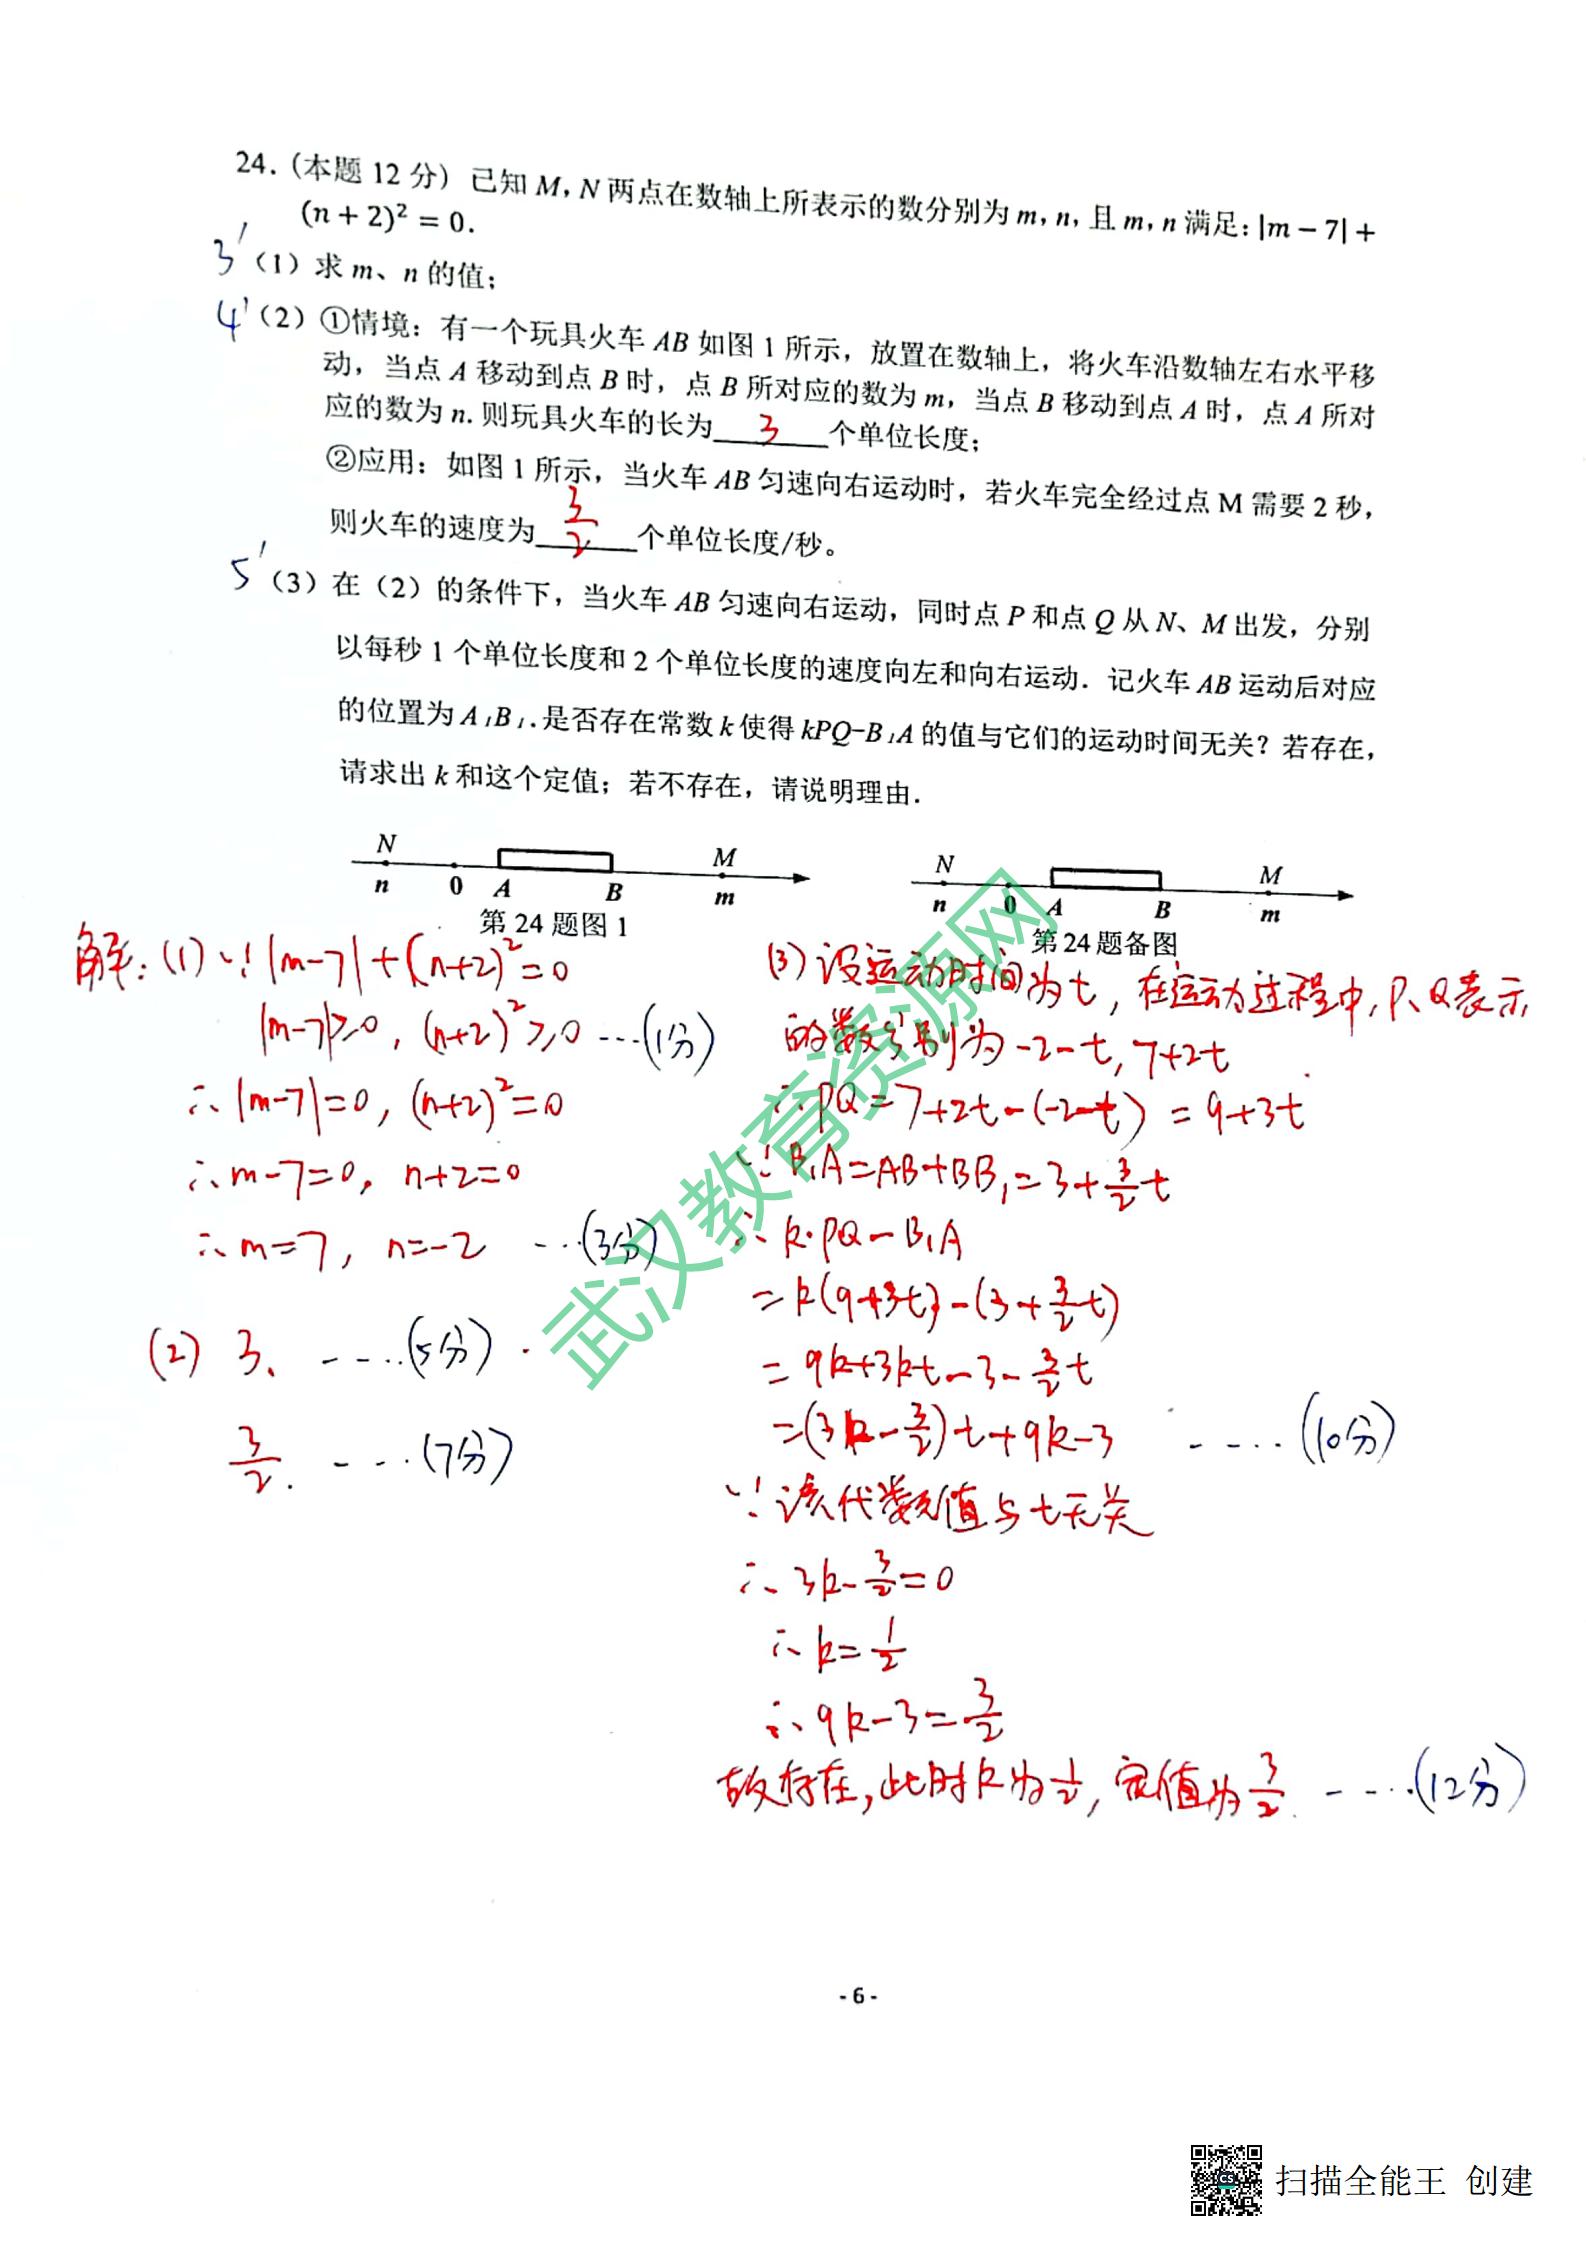 24.(本题 12 分) 已知 M, N 两点在数轴上所表示的数分别为 m, n, 且 m, n 满足: |m − 7| +
(n + 2)² = 0.
3′ (1) 求 m、n 的值;
4′ (2) ①情境: 有一个玩具火车 AB 如图 1 所示, 放置在数轴上, 将火车沿数轴左右水平移
动, 当点 A 移动到点 B 时, 点 B 所对应的数为 m, 当点 B 移动到点 A 时, 点 A 所对
应的数为 n. 则玩具火车的长为 3 个单位长度;
②应用: 如图 1 所示, 当火车 AB 匀速向右运动时, 若火车完全经过点 M 需要 2 秒,
则火车的速度为 3/2 个单位长度/秒。
5′ (3) 在 (2) 的条件下, 当火车 AB 匀速向右运动, 同时点 P 和点 Q 从 N、M 出发, 分别
以每秒 1 个单位长度和 2 个单位长度的速度向左和向右运动. 记火车 AB 运动后对应
的位置为 A₁B₁. 是否存在常数 k 使得 kPQ−B₁A 的值与它们的运动时间无关? 若存在,
请求出 k 和这个定值; 若不存在, 请说明理由.
N M
n 0 A B m
第 24 题图 1
N M
n 0 A B m
第 24 题备图
解: (1) ∵ |m−7|+(n+2)²=0
|m−7|≥0, (n+2)²≥0 ---(1分)
∴ |m−7|=0, (n+2)²=0
∴ m−7=0, n+2=0
∴ m=7, n=−2 ---(3分)
(2) 3. ----(5分)
3/2. ----(7分)
(3) 设运动时间为t, 在运动过程中, P、Q表示
的数分别为 −2−t, 7+2t
∴ PQ=7+2t−(−2−t) = 9+3t
∵ B₁A=AB+BB₁=3+3/2t
∴ k·PQ−B₁A
= k(9+3t)−(3+3/2t)
= 9k+3kt−3−3/2t
=(3k−3/2)t+9k−3 ----(10分)
∵ 该代数值与t无关
∴ 3k−3/2=0
∴ k=1/2
∴ 9k−3=3/2
故存在, 此时k为1/2, 定值为3/2. ----(12分)
武汉教育资源网
- 6 -
CS
扫描全能王 创建